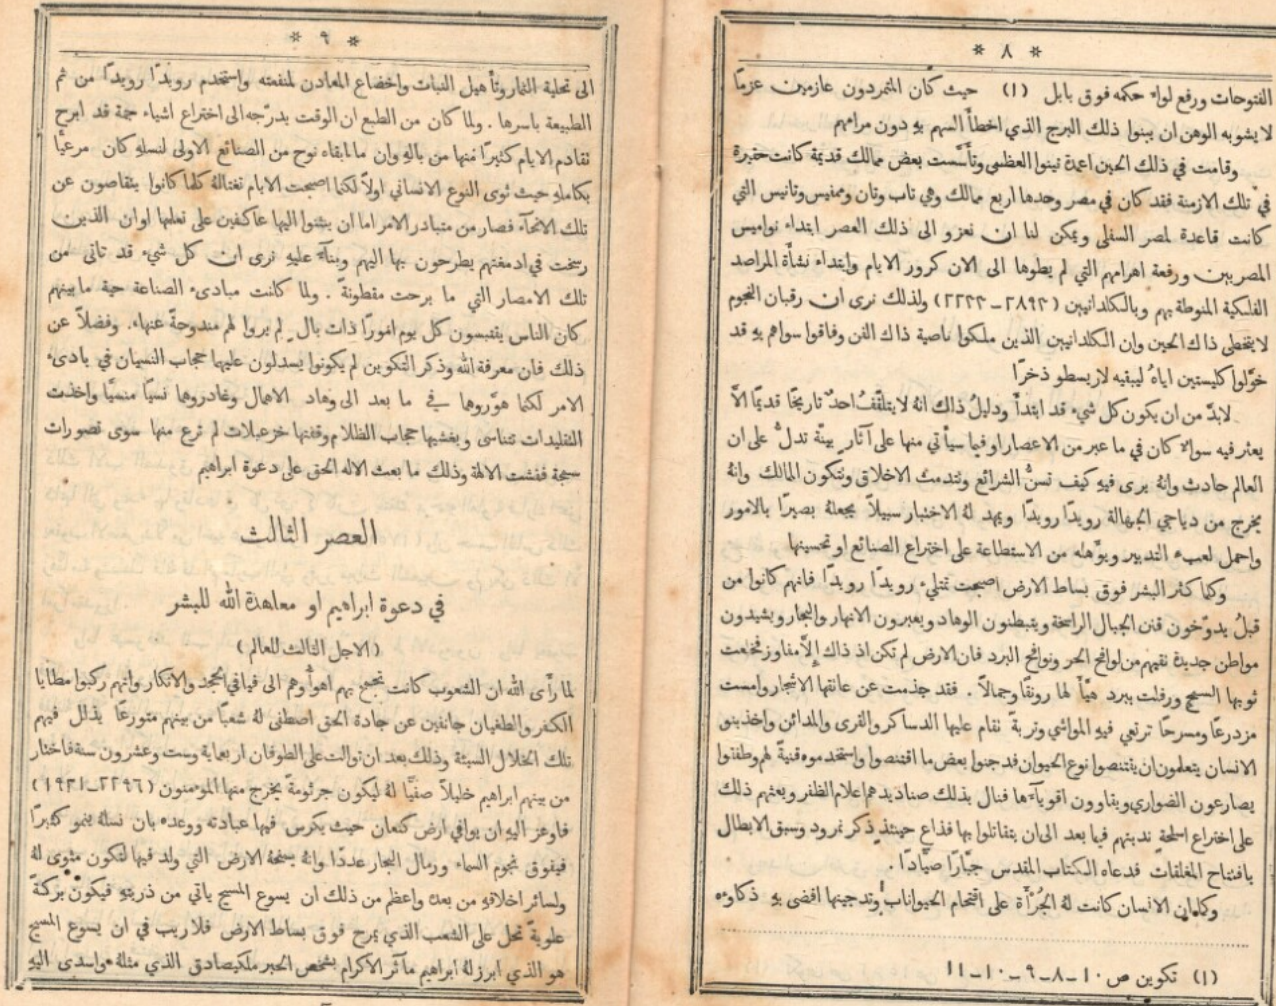 * ٨ *
الفتوحات ورفع لواء حكمه فوق بابل (١) حيث كان المتمردون عازمين عزمًا
لا يشوبه الوهن ان يبنوا ذلك البرج الذي اخطأ السهم بهِ دون مرامهم
وقامت في ذلك الحين اعمدة نينوا العظمى وتأسَّست بعض ممالك قديمة كانت حقيرة
في تلك الازمنة فقد كان في مصر وحدها اربع ممالك وهي تاب وتان وممفيس وتانيس التي
كانت قاعدة لمصر السفلى ويمكن لنا ان نعزو الى ذلك العصر ابتداء نواميس
المصريين ورفعة اهرامهم التي لم يطوها الى الان كرور الايام وابتداء نشأة المراصد
الفلكية المنوطة بهم وبالكلدانيين ولذلك نرى ان رقبان النجوم
لا يتخطى ذاك الحين وان الكلدانيين الذين ملكوا ناصية ذاك الفن وفاقوا سواهم بهِ قد
خوَّلوا كليستين اياهُ ليبقيه لاريسطو ذخرًا
لابدَّ من ان يكون كل شيء قد ابتدأ ودليلُ ذلك انهُ لا يتلقَّفُ احدٌ تاريخًا قديمًا الاَّ
يعثر فيه سواء كان في ما عبر من الاعصار او فيما سيأتي منها على آثار بينَّة تدلُّ على ان
العالم حادث وانهُ يرى فيهِ كيف تسنُّ الشرائع وتتدمث الاخلاق وتتكون الممالك وانهُ
يخرج من دياجي الجهالة رويدًا رويدًا ويمهد لهُ الاختبار سبيلاً يجعلهُ بصيرًا بالامور
واحمل لعبء التدبير ويؤَهله من الاستطاعة على اختراع الصنائع او تحسينها
وكما كثر البشر فوق بساط الارض اصبحت تمتلئ رويدًا رويدًا فانهم كانوا من
قبلُ يدوّخون قنن الجبال الراسخة ويتبطنون الوهاد ويعبرون الانهار والبحار ويشيدون
مواطن جديدة تقيهم من لوافح الحر ونوافح البرد فان الارض لم تكن اذ ذاك الاَّ مفاوز فخلعت
ثوبها السمج ورفلت ببرد هيَّأ لها رونقًا وجمالاً . فقد جذمت عن عاتقها الاشجار وامست
مزدرعًا ومسرحًا ترتعي فيهِ المواشي وتربةً تقام عليها الدساكر والقرى والمدائن واخذ بنو
الانسان يتعلمون ان يقتنصوا نوع الحيوان فدجنوا بعض ما اقتنصوا واستخدموه قنيةً لهم وطفقوا
يصارعون الضواري ويقاوون اقوياءَها فنال بذلك صناديدهم اعلام الظفر وبعثهم ذلك
على اختراع اسلحةٍ ندبتهم فيما بعد الى ان يتقاتلوا بها فذاع حينئذٍ ذكر نمرود وسبق الابطال
بافتتاح المغلقات فدعاه الكتاب المقدس جبَّارًا صيَّادًا .
وكما ان الانسان كانت لهُ الجُرْأة على اقتحام الحيوانات وتدجينها افضى بهِ ذكاوءه
(١) تكوين ص ١٠-٨-٩-١٠-١١
* ٩ *
الى تحلية الثمار وتأهيل النبات واخضاع المعادن لمنفعته واستخدم رويدًا رويدًا من ثم
الطبيعة باسرها . ولما كان من الطبع ان الوقت يدرّجه الى اختراع اشياء جمة قد ابرح
تقادم الايام كثيرًا منها من بالهِ وان ما ابقاه نوح من الصنائع الاولى لنسلهِ كان مرعيًّا
بكاملهِ حيث ثوى النوع الانساني اولاً لكنما اصبحت الايام تغتالهُ كلما كانوا يتقاصون عن
تلك الانحآء فصار من متبادر الامر اما ان ينثنوا اليها عاكفين على تعلمها او ان الذين
رسخت في ادمغتهم يطرحون بها اليهم وبنآءً عليهِ نرى ان كل شيء قد تاتى من
تلك الامصار التي ما برحت مقطونةً . ولما كانت مبادىء الصناعة حية ما بينهم
كان الناس يقتبسون كل يوم امورًا ذات بال . لم يروا لهم مندوحةً عنها . وفضلاً عن
ذلك فان معرفة الله وذكر التكوين لم يكونوا يسدلون عليها حجاب النسيان في بادىء
الامر لكنما هوَّروها في ما بعد الى وهاد الاهمال وغادروها نسيًا منسيًا واخذت
التقليدات تتناسى ويغشيها حجاب الظلام وقفتها خزعبلات لم ترع منها سوى تصورات
سمجة ففشت الالهة وذلك ما بعث الاله الحق على دعوة ابراهيم
العصر الثالث
في دعوة ابراهيم او معاهدة الله للبشر
(الاجل الثالث للعالم)
لما رأى الله ان الشعوب كانت تجمح بهم اهوآؤهم الى فيافي الجحد والانكار وانهم ركبوا مطايا
الكفر والطغيان جانفين عن جادة الحق اصطفى لهُ شعبًا من بينهم متورعًا يذلل فيهم
تلك الخلال السيئة وذلك بعد ان توالت على الطوفان اربعماية وست وعشرون سنة فاختار
من بينهم ابراهيم خليلاً صفيًّا لهُ ليكون جرثومةً يخرج منها المؤمنون (٢٢٩٦-١٩٢١)
فاوعز اليهِ ان يوافي ارض كنعان حيث يكرس فيها عبادته ووعده بان نسلهُ ينمو كثيرًا
فيفوق نجوم السماء ورمال البحار عددًا وانهُ يمنحهُ الارض التي ولد فيها لتكون مثوى لهُ
ولسائر اخلافهِ من بعده واعظم من ذلك ان يسوع المسيح ياتي من ذريتهِ فيكون بركةً
علويةً تحل على الشعب الذي يمرح فوق بساط الارض فلا ريب في ان يسوع المسيح
هو الذي ابرز لهُ ابراهيم مآثر الاكرام بشخص الحبر ملكيصادق الذي مثلهُ واسدى اليهِ